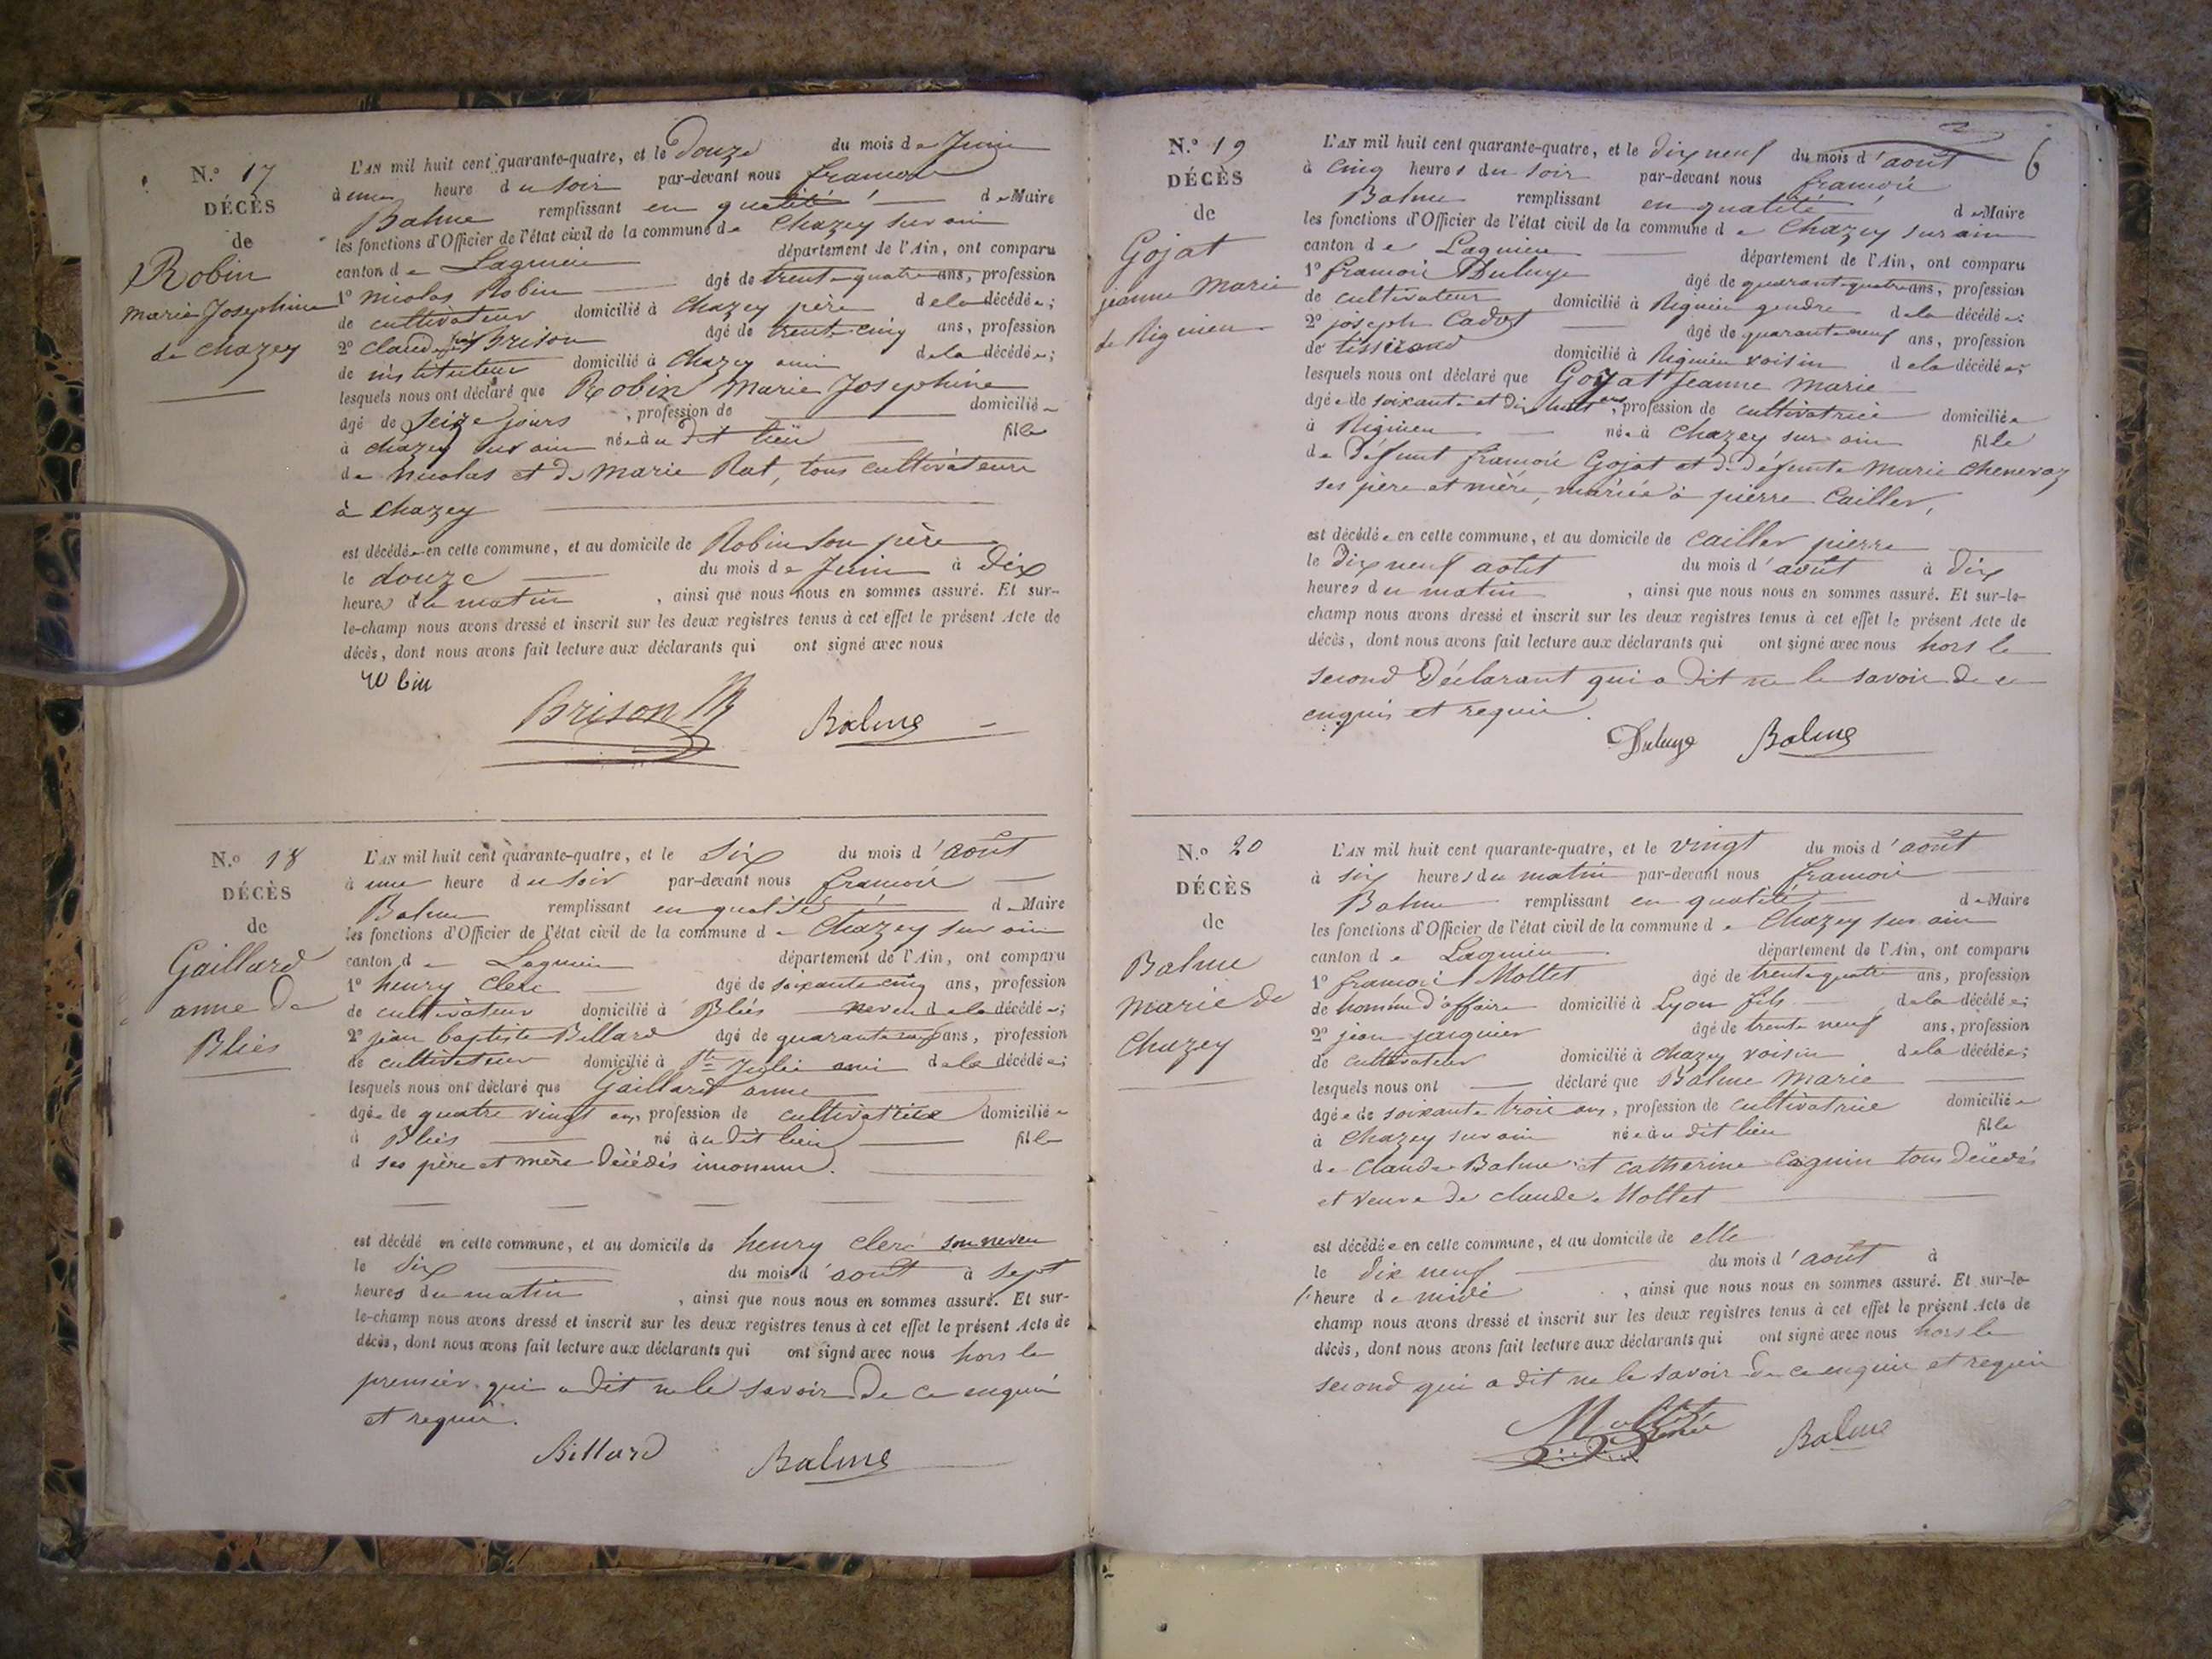 N.° 17
DÉCÈS
de
Robin
marie Josephine
de chazey
L'AN mil huit cent quarante-quatre, et le douze du mois de Juin
à une heure du soir par-devant nous francois
Balme remplissant en qualité de Maire
les fonctions d'Officier de l'état civil de la commune de Chazey sur ain
canton de Lagnieu département de l'Ain, ont comparu
1° nicolas Robin âgé de trente quatre ans, profession
de cultivateur domicilié à Chazey père de la décédée;
2° claude Brison âgé de trente cinq ans, profession
de instituteur domicilié à Chazey ami de la décédée;
lesquels nous ont déclaré que Robin Marie Josephine
âgé de Seize jours , profession de domiciliée
à chazey sur ain née au dit lieu fille
de nicolas et de Marie Rat, tous cultivateurs
à Chazey
est décédée en cette commune, et au domicile de Robin Son père
le douze du mois de Juin à dix
heures du matin , ainsi que nous nous en sommes assuré. Et sur-
le-champ nous avons dressé et inscrit sur les deux registres tenus à cet effet le présent Acte de
décès, dont nous avons fait lecture aux déclarants qui ont signé avec nous
robin
Brison Balme
N.° 18
DÉCÈS
de
Gaillard
anne de
Bliés
L'AN mil huit cent quarante-quatre, et le Six du mois d'août
à une heure du soir par-devant nous francois
Balme remplissant en qualité de Maire
les fonctions d'Officier de l'état civil de la commune de Chazey sur ain
canton de Lagnieu département de l'Ain, ont comparu
1° henry Clerc âgé de soixante cinq ans, profession
de cultivateur domicilié à Bliés neveu de la décédée;
2° jean baptiste Billard âgé de quarante ans, profession
de cultivateur domicilié à Ste Julie ami de la décédée;
lesquels nous ont déclaré que Gaillard anne
âgée de quatre vingt ans, profession de cultivatrice domiciliée
à Bliés né au dit lieu fille
d ses père et mère décédés inconnus.
est décédé en cette commune, et au domicile de henry Clerc son neveu
le Six du mois d'août à sept
heures du matin , ainsi que nous nous en sommes assuré. Et sur-
le-champ nous avons dressé et inscrit sur les deux registres tenus à cet effet le présent Acte de
décès, dont nous avons fait lecture aux déclarants qui ont signé avec nous hors le
premier qui a dit ne le savoir de ce enquis
et requis.
Billard Balme
6
N.° 19
DÉCÈS
de
Gojat
jeanne Marie
de Rignieu
L'AN mil huit cent quarante-quatre, et le dix neuf du mois d'août
à cinq heures du soir par-devant nous francois
Balme remplissant en qualité de Maire
les fonctions d'Officier de l'état civil de la commune de Chazey sur ain
canton de Lagnieu département de l'Ain, ont comparu
1° francois Duluye âgé de quarante quatre ans, profession
de cultivateur domicilié à Rignieu gendre de la décédée;
2° joseph Cadot âgé de quarante neuf ans, profession
de tisserand domicilié à Rignieu voisin de la décédée;
lesquels nous ont déclaré que Gojat Jeanne Marie
âgée de soixante et dix huit ans, profession de cultivatrice domiciliée
à Rignieu née à Chazey sur ain fille
de défunt francois Gojat et de défunte Marie Chenevaz
ses père et mère, mariée à pierre Cailler,
est décédée en cette commune, et au domicile de Cailler pierre
le dix neuf août du mois d'août à dix
heures du matin , ainsi que nous nous en sommes assuré. Et sur-le-
champ nous avons dressé et inscrit sur les deux registres tenus à cet effet le présent Acte de
décès, dont nous avons fait lecture aux déclarants qui ont signé avec nous hors le
second Déclarant qui a dit ne le savoir de ce
enquis et requis.
Duluye Balme
N.° 20
DÉCÈS
de
Balme
Marie de
Chazey
L'AN mil huit cent quarante-quatre, et le vingt du mois d'août
à six heures du matin par-devant nous francois
Balme remplissant en qualité de Maire
les fonctions d'Officier de l'état civil de la commune de Chazey sur ain
canton de Lagnieu département de l'Ain, ont comparu
1° francois Mollet âgé de trente quatre ans, profession
de homme d'affaire domicilié à Lyon fils de la décédée;
2° jean jacquier âgé de trente neuf ans, profession
de cultivateur domicilié à chazey voisin de la décédée;
lesquels nous ont déclaré que Balme Marie
âgée de soixante trois ans, profession de cultivatrice domiciliée
à Chazey sur ain née au dit lieu fille
de Claude Balme et Catherine Cognin tous décédés
et veuve de claude Mollet
est décédée en cette commune, et au domicile de elle
le dix neuf du mois d'août à
1 heure de midi , ainsi que nous nous en sommes assuré. Et sur-le-
champ nous avons dressé et inscrit sur les deux registres tenus à cet effet le présent Acte de
décès, dont nous avons fait lecture aux déclarants qui ont signé avec nous hors le
second qui a dit ne le savoir de ce enquis et requis
Balme